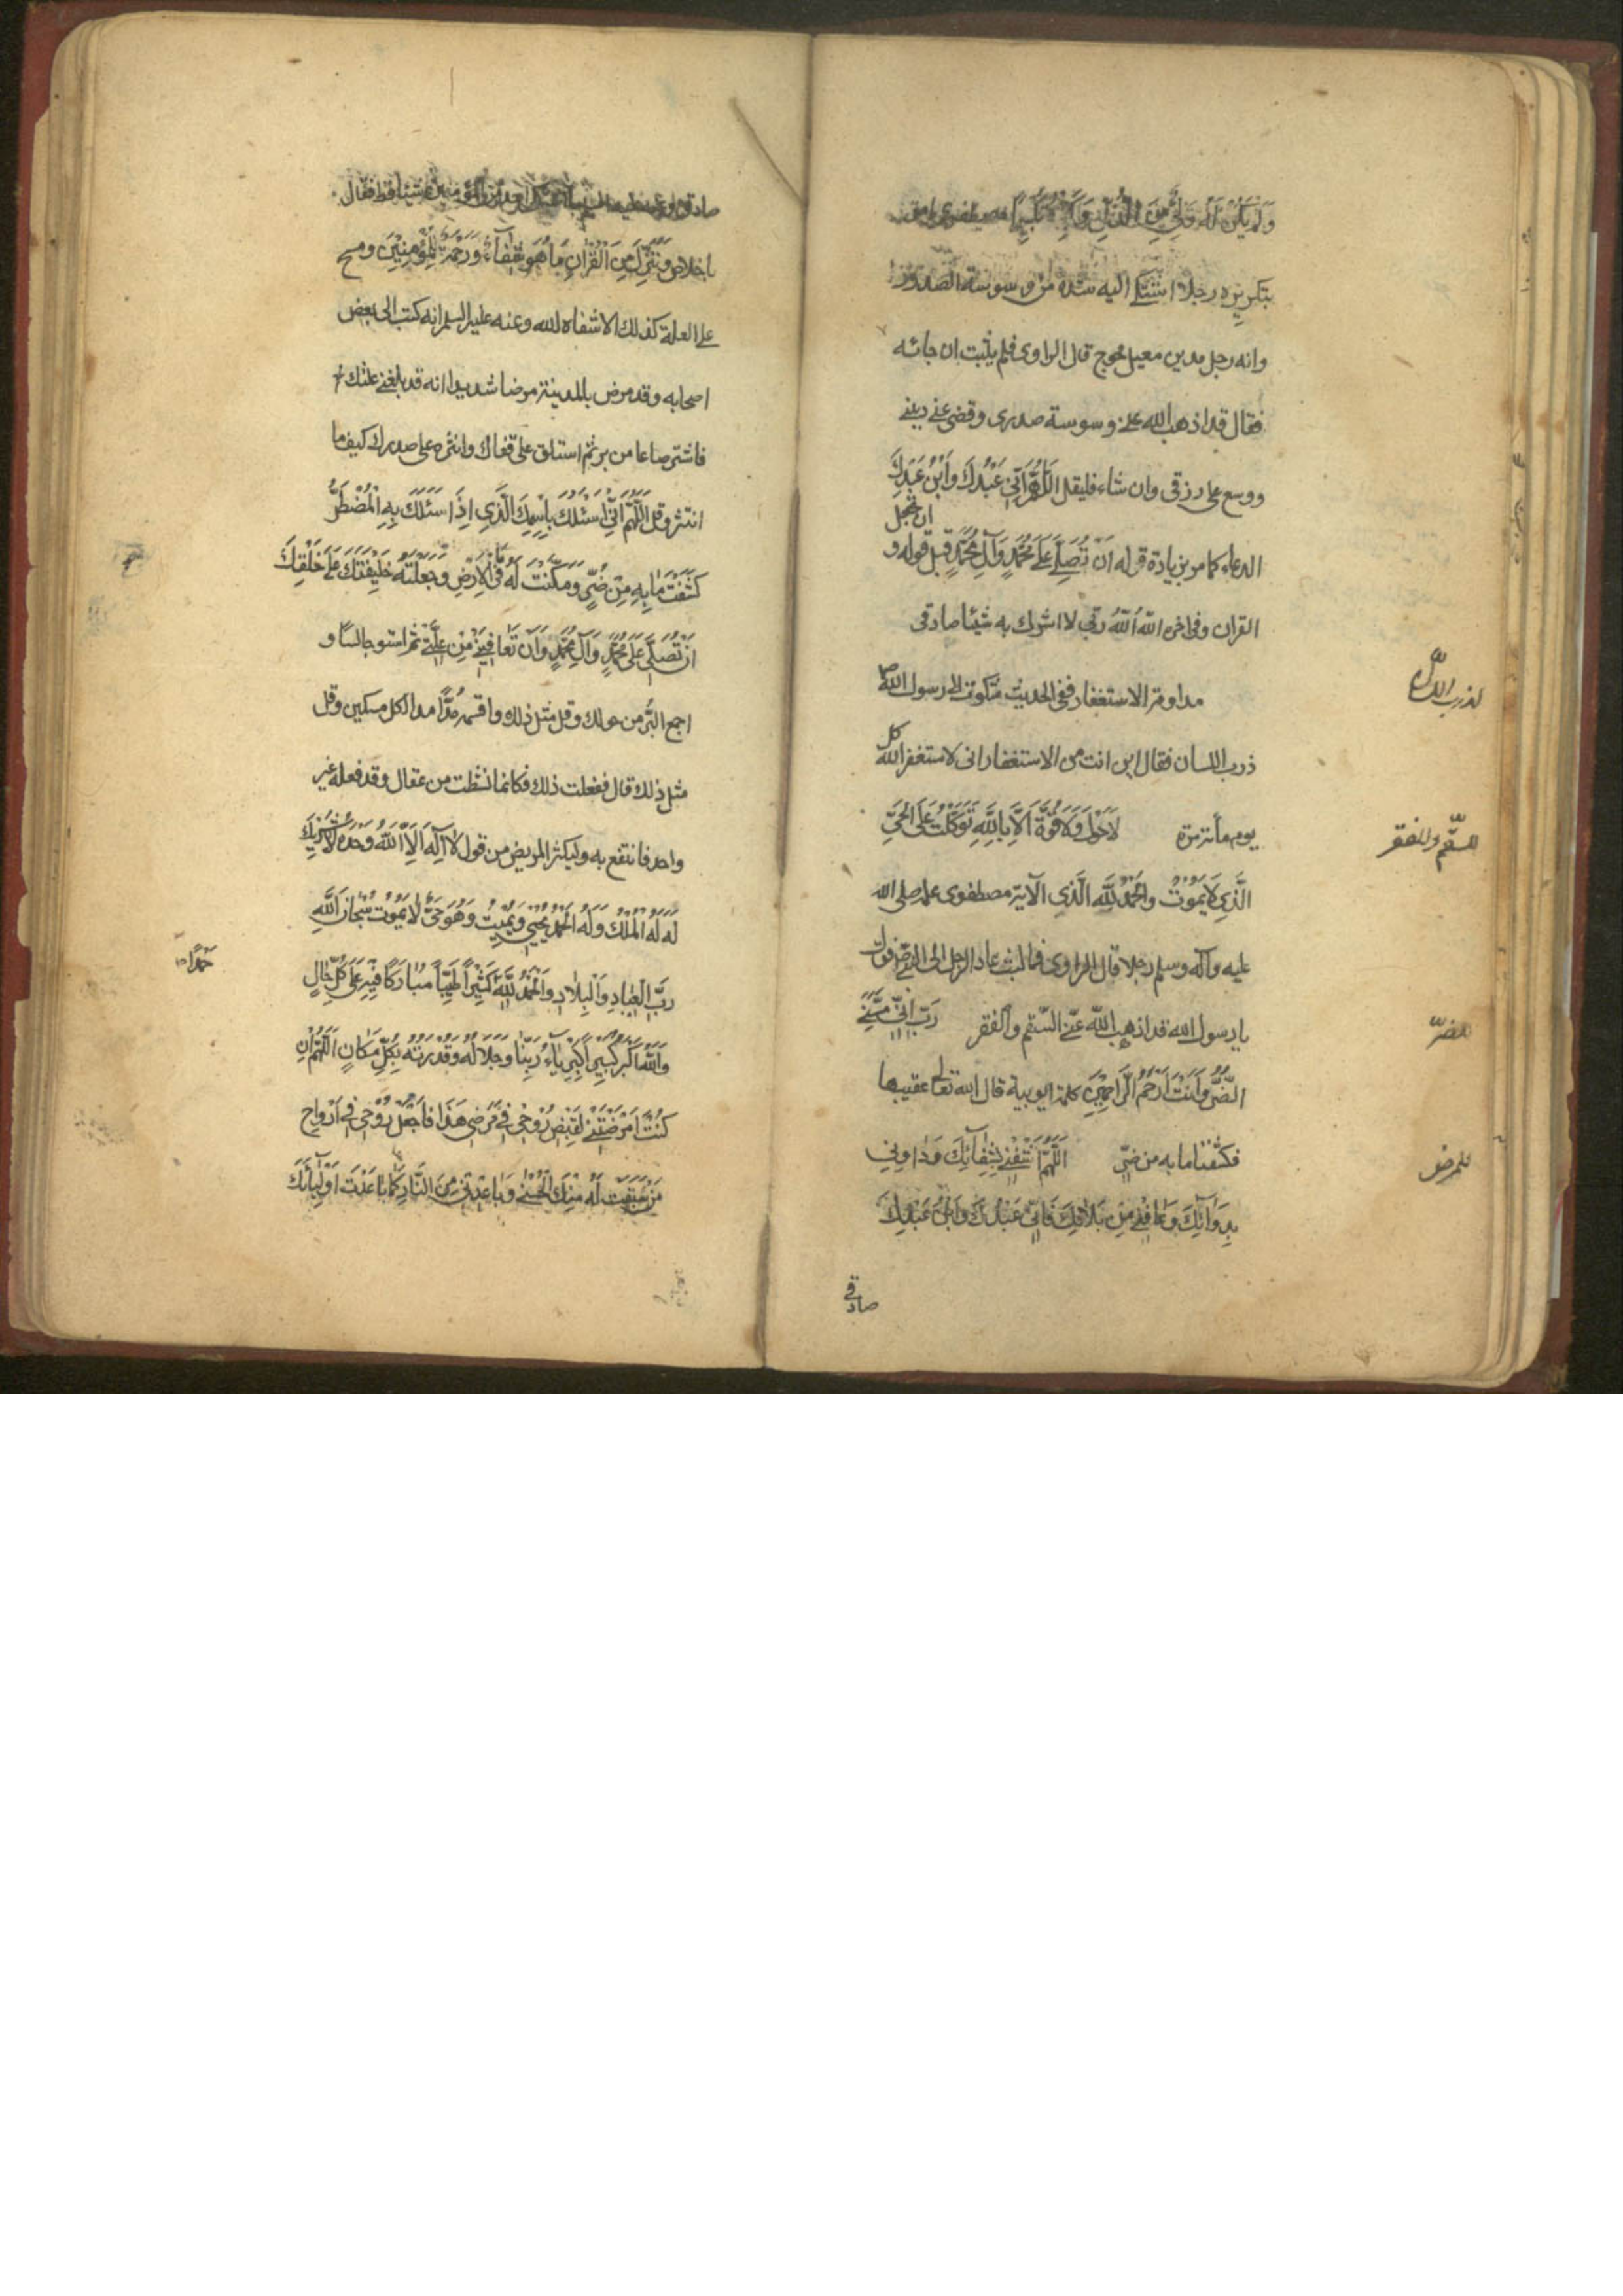 وَلَمْ يَكُنْ لَهُ وَلِيٌّ مِنَ الذُّلِّ وَكَبِّرْهُ تَكْبِيرًا مصطفوى امر
بتكريره رجلا اشتكى اليه شدة من وسوسة الصدور
وانه رجل مدين معيل محوج قال الراوى فلم يلبث ان جائه
فقال قد اذهب الله عنى وسوسة صدرى وقضى عنى دينى
ووسع على رزقى وان شاء فليقل اَللّٰهُمَّ اِنِّي عَبْدُكَ وَابْنُ عَبْدِكَ
الدعاء كما مر بزيادة قوله اَنْ تُصَلِّيَ عَلٰى مُحَمَّدٍ وَآلِ مُحَمَّدٍ قبل قوله و ان تجعل
القران وفى اخره اَللّٰهُ اَللّٰهُ رَبِّي لا اشرك به شيئا صادقى
لذرب اللسان
مداومة الاستغفار ففى الحديث شكوت الى رسول الله ص
ذرب اللسان فقال اين انت من الاستغفار انى لاستغفر الله كل
يوم مأة مرة لَا حَوْلَ وَلَا قُوَّةَ اِلَّا بِاللّٰهِ تَوَكَّلْتُ عَلَى الْحَيِّ
للسقم والفقر
الَّذِي لَا يَمُوتُ وَالْحَمْدُ لِلّٰهِ الَّذِي الآية مصطفوى علمه صلى الله
عليه وآله وسلم رجلا قال الراوى فما لبث عاد الرجل الى النبى ص فقال
يا رسول الله قد اذهب الله عنى السقم والفقر رَبِّ اِنِّي مَسَّنِيَ
للضر
الضُّرُّ وَاَنْتَ اَرْحَمُ الرَّاحِمِينَ كلمة ايوبية قال الله تعالى عقيبها
فكشفنا ما به من ضر اَللّٰهُمَّ اشْفِنِي بِشِفَائِكَ وَدَاوِنِي
للمرض
بِدَوَائِكَ وَعَافِنِي مِنْ بَلَائِكَ فَاِنِّي عَبْدُكَ وَابْنُ عَبْدِكَ
صادقى
صادقى وعنه عليه السلم ما اشتكى احد من المؤمنين شيئا قط فقال
باخلاص وَنُنَزِّلُ مِنَ الْقُرْآنِ مَا هُوَ شِفَاءٌ وَرَحْمَةٌ لِلْمُؤْمِنِينَ ومسح
على العلة كذلك الا شفاه الله وعنه عليه السلم انه كتب الى بعض
اصحابه وقد مرض بالمدينة مرضا شديدا انه قد بلغنى علتك
فاشتر صاعا من بر ثم استلق على قفاك وانثره على صدرك كيف ما
انتثر وقل اَللّٰهُمَّ اِنِّي اَسْئَلُكَ بِاسْمِكَ الَّذِي اِذَا سَئَلَكَ بِهِ الْمُضْطَرُّ
كَشَفْتَ مَا بِهِ مِنْ ضُرٍّ وَمَكَّنْتَ لَهُ فِي الْاَرْضِ وَجَعَلْتَهُ خَلِيفَتَكَ عَلٰى خَلْقِكَ
اَنْ تُصَلِّيَ عَلٰى مُحَمَّدٍ وَآلِ مُحَمَّدٍ وَاَنْ تُعَافِيَنِي مِنْ عِلَّتِي ثم استو جالسا و
اجمع البُرّ من حولك وقل مثل ذلك واقسمه مُدًّا مدا لكل مسكين وقل
مثل ذلك قال ففعلت ذلك فكانما نشطت من عقال وقد فعله غير
واحد فانتفع به وليكثر المريض من قول لَا اِلٰهَ اِلَّا اللّٰهُ وَحْدَهُ لَا شَرِيكَ
لَهُ لَهُ الْمُلْكُ وَلَهُ الْحَمْدُ يُحْيِي وَيُمِيتُ وَهُوَ حَيٌّ لَا يَمُوتُ سُبْحَانَ اللّٰهِ
رَبِّ الْعِبَادِ وَالْبِلَادِ وَالْحَمْدُ لِلّٰهِ كَثِيرًا طَيِّبًا مُبَارَكًا فِيهِ عَلٰى كُلِّ حَالٍ
حَمْدًا
وَاللّٰهُ اَكْبَرُ كَبِيرًا كِبْرِيَاءُ رَبِّنَا وَجَلَالُهُ وَقُدْرَتُهُ بِكُلِّ مَكَانٍ اَللّٰهُمَّ اِنْ
كُنْتَ اَمْرَضْتَنِي لِقَبْضِ رُوحِي فِي مَرَضِي هٰذَا فَاجْعَلْ رُوحِي فِي اَرْوَاحِ
مَنْ سَبَقَتْ لَهُ مِنْكَ الْحُسْنٰى وَبَاعِدْنِي مِنَ النَّارِ كَمَا بَاعَدْتَ اَوْلِيَائَكَ